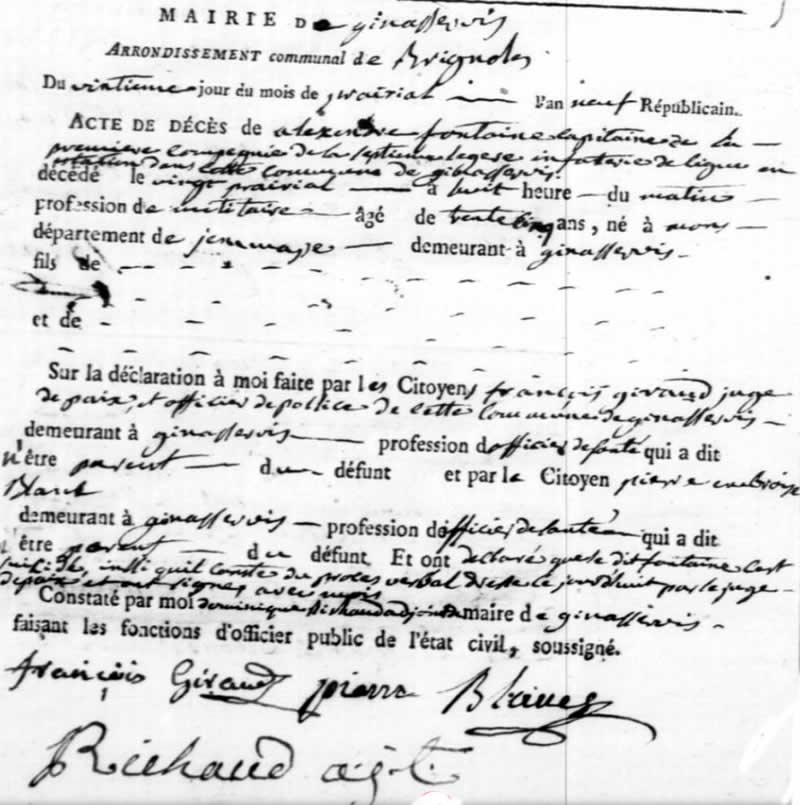 MAIRIE De ginasservis
ARRONDISSEMENT communal de Brignoles
Du vintieme jour du mois de prairial l'an neuf Républicain.
ACTE DE DÉCÈS de alexendre fontaine Capitaine de la
premiere Compegnie de la septieme legere infaterie de ligne en
station dans cette Commune de ginasservis.
décédé le vingt prairial à huit heure du matin
profession de militaire âgé de trente Cinq ans, né à mons
département de jemmape demeurant à ginasservis
fils de
et de
Sur la déclaration à moi faite par les Citoyens françois giraud juge
de paix, et officier de pollice de cette Commune de ginasservis
demeurant à ginasservis profession d'officier de santé qui a dit
n'être parent du défunt et par le Citoyen pierre embroise
Blanc
demeurant à ginasservis profession d'officier de santé qui a dit
n'être parent du défunt. Et ont declaré que le dit fontaine C'est
suicidé, insi quil Conste du proces verbal dressé ce jourdhuit par le juge
de paix et ont signés avec nous
Constaté par moi dominique Richaud adjoint maire de ginasservis
faisant les fonctions d'officier public de l'état civil, soussigné.
françois Giraud pierre Blanc
Richaud ajt.